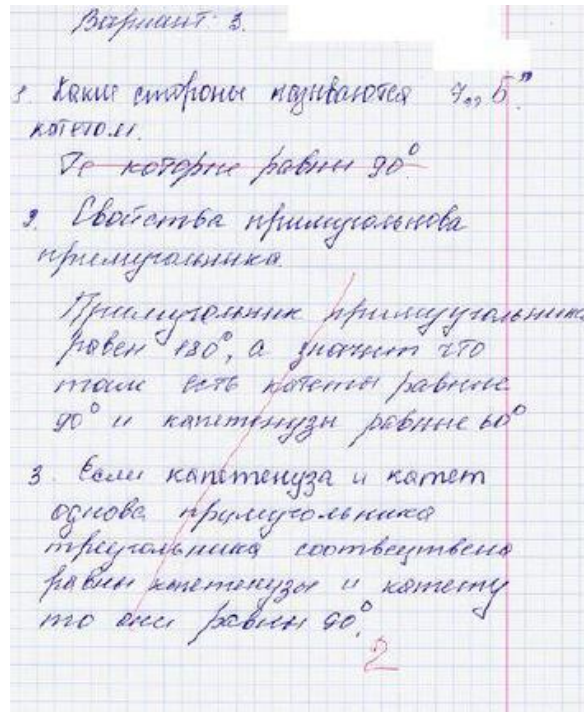 Вариант 3.
1. Какие стороны называются 7 „Б"
котетом.
Те которие равни 90°.
2. Свойства примуголнова
примуголника.
Примуголник примуууголника
равен 180°, а значит что
там есть катеты равние
90° и капетенузы равные 60°
3. Если капетенуза и катет
однова примуголника
треуголника соотвецтвено
равны капетенузы и катету
то они равны 90°.
2